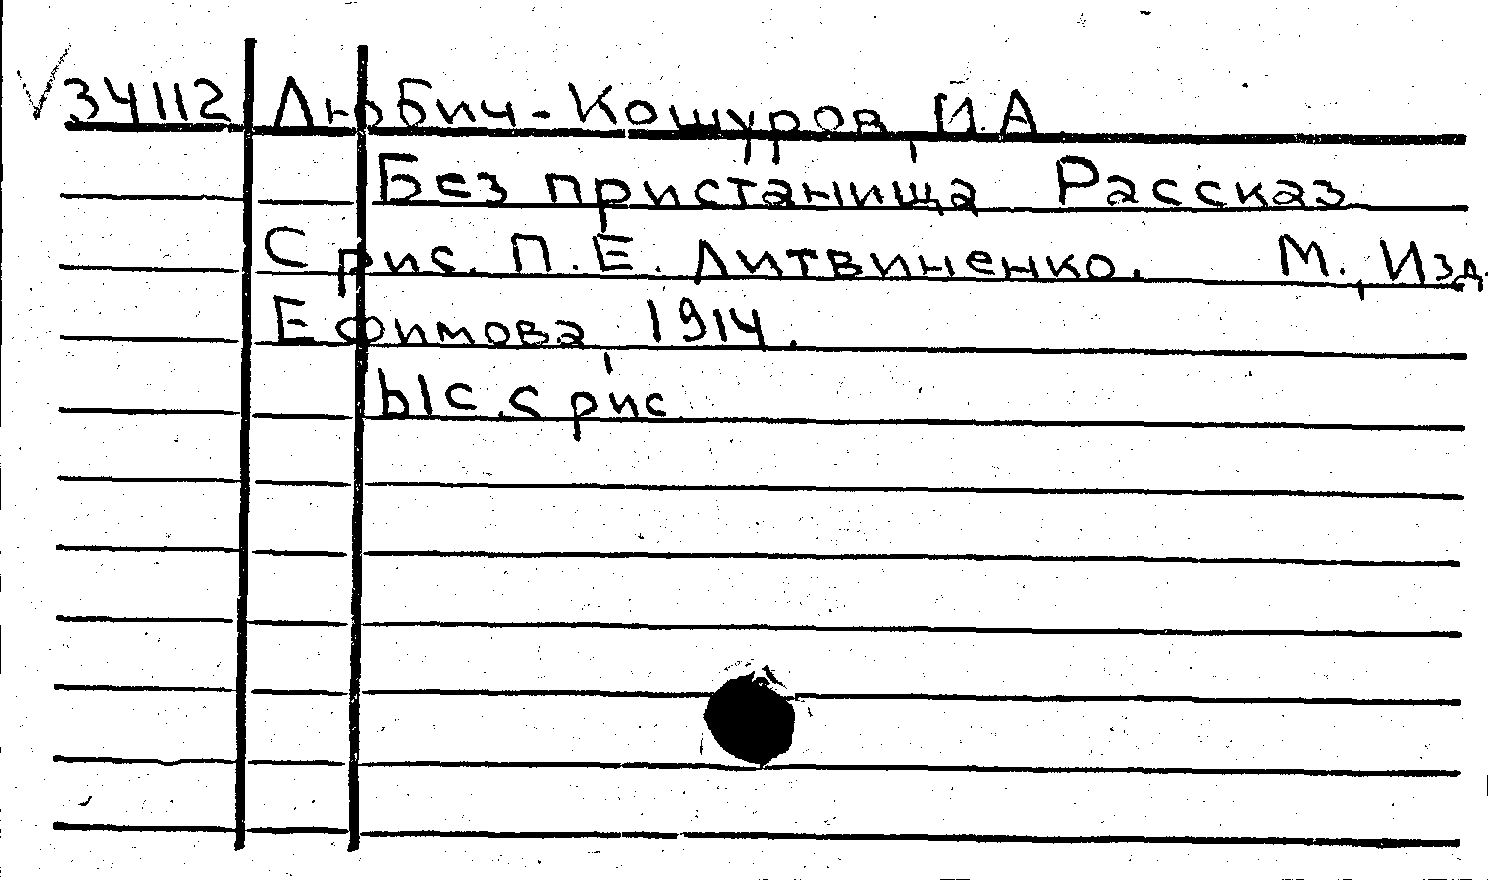 34112 Любич-Кошуров, И.А
Без пристанища Рассказ
С рис. П.Е. Литвиненко. М., Изд.
Ефимова, 1914.
61с. с рис